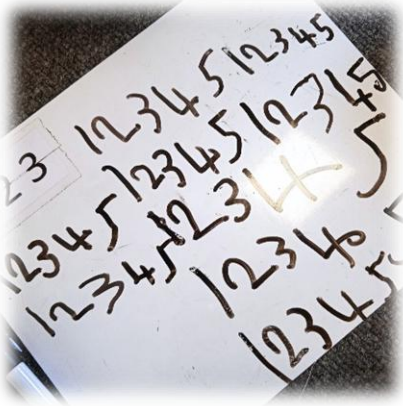 23 12345 12345
12345 12345
12345 12345
12345 1234
12345